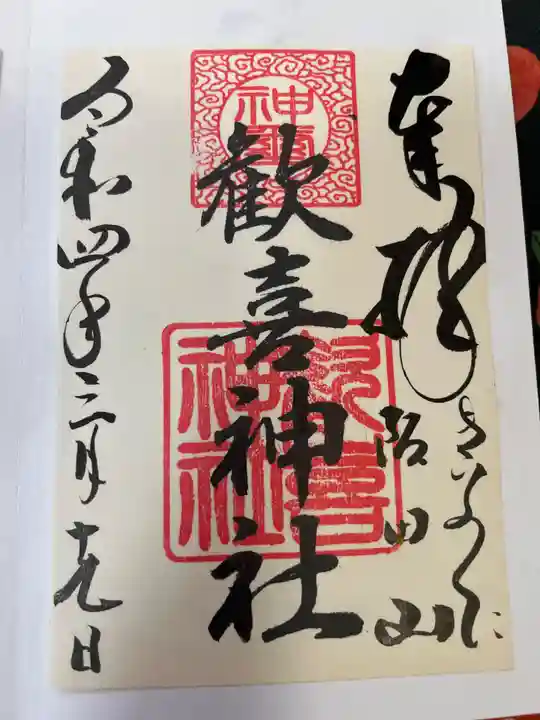 奉拝
さのくに
沼田山
歓喜神社
神璽
歓喜神社
令和四年三月十九日